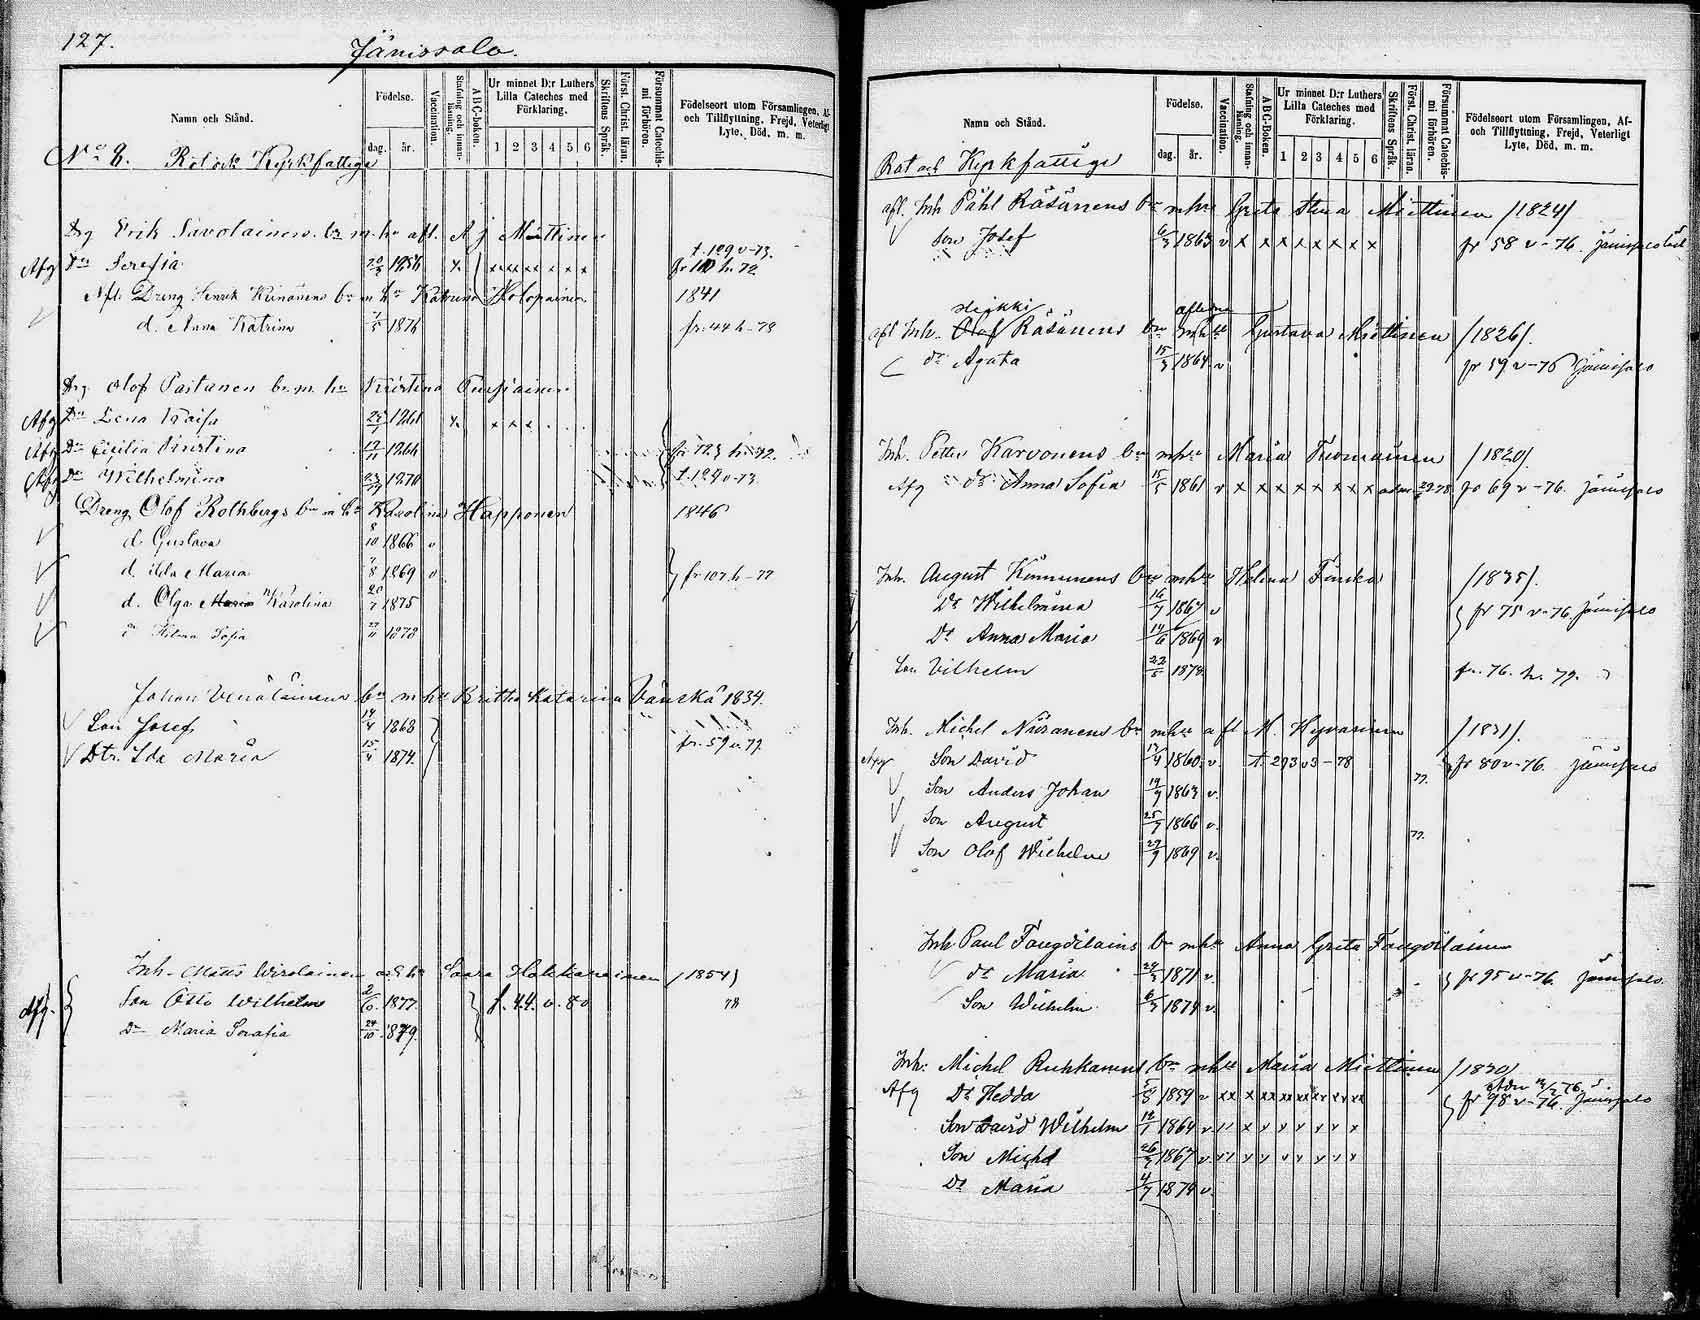 127.
Jänissalo.
Namn och Stånd.
Födelse.
dag. år.
Vaccination.
Stafning och innanläsning.
A B C-boken.
Ur minnet D:r Luthers Lilla Cateches med Förklaring.
1 2 3 4 5 6
Skriftens Språk.
Först. Christ. läran.
Försummat Catechismi förhören.
Födelseort utom Församlingen, Af- och Tillflyttning, Frejd, Veterligt Lyte, Död, m. m.
No 8. Rot och Kyrkfattige
Drg Erik Savolainens bn m. hu afl. A j Miettinen
t. 129 v-73.
Afg Dr Serefia 1856 x fr 110 h. 72
Afl. Dreng Henrik Keinänens bn m hu Katrina Holopainen 1841
d. Anna Katrina 7/5 1876 fr. 44 h-78
Drg Olof Partanen bn. m. hu Kristina Turpiainen
Afg Dr Lena Kaisa 1861 x x x x
Afg Dr Cicilia Kristina 1864 fr 123 h-72.
Afg Dr Wilhelmina 1870 t. 129 v-73.
Dreng Olof Rothbergs bn m hu Karolina Happonen 1846
d. Gustava 8/10 1866 v
d. Ida Maria 7/8 1869 v fr 107 h-77
d. Olga Maria Karolina 20/7 1875
d Hilma Sofia 1878
Johan Venäläinens bn m hu Britha Katarina Vänskä 1834.
Son Josef 14/4 1868
Dtr. Ida Maria 15/4 1874. fr. 59 v. 77
Inh. Matts Wirolainen och hu Saara Hakkarainen (1854)
Son Otto Wilhelm 2/6 1877. f. 44. v. 80 78
Afg. Dr Maria Serafia 24/10 1879.
Namn och Stånd.
Födelse.
dag. år.
Vaccination.
Stafning och innanläsning.
A B C-Boken.
Ur minnet D:r Luthers Lilla Cateches med Förklaring.
1 2 3 4 5 6
Skriftens Språk.
Först. Christ. läran.
Försummat Catechismi förhören.
Födelseort utom Församlingen, Af- och Tillflyttning, Frejd, Veterligt Lyte, Död, m. m.
Rot och Kyrkfattige
afl. Inh Påhl Räsänens bn mhu Greta Stina Miettinen /1824/
Son Josef 6/3 1863 v x x x x x x x x fr 58 v-76. Jänissalo
Heikki aflidne
afl Inh. Olof Räsänens bn mhu Gustava Miettinen /1826/.
dr Agata 15/3 1864. v fr 59 v-76 Jänissalo
Inh. Petter Karvonens bn mhu Maria Tuomainen /1820/.
Afg dr Anna Sofia 15/5 1861 v x x x x x x x x adm 78 fr 69 v-76. Jänissalo
Inh. August Kinnunens bn mhu Helena Finska /1835/.
Dr Wilhelmina 16/7 1867 v fr 75 v-76. Jänissalo
Dr Anna Maria 14/6 1869 v
Son Vilhelm 22/5 1878. fr. 76. h. 79.
Inh. Michel Nuranens bn mhu afl M. Hyvarinen /1831/.
Afg Son David 1860. v. t. 293 v3-78 fr 80 v-76. Jänissalo
Son Anders Johan 19/9 1863 v. 77.
Son August 25/7 1866 v.
Son Olof Wilhelm 27/9 1869 v. 77.
Inh Paul Taugdilains bn mhu Anna Greta Taugdilainen
dr Maria 24/3 1871 v. fr 95 v-76. Jänissalo.
Son Wilhelm. 6/3 1874 v.
Inh: Michel Ruhkanens bn mhu Maria Miettinen /1830/
Afg Dr Hedda 5/8 1859 v xx x xx xx xx xx xx xx fr 98 v-76. Jänissalo
Son David Wilhelm 12/1 1864 v
Son Michel 26/3 1867 v.
Dr Maria 4/7 1874 v.